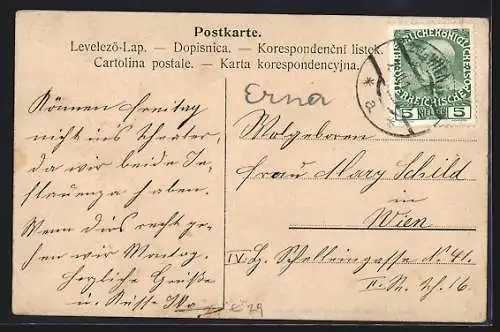 Postkarte.
Levelező-Lap. — Dopisnica. — Korespondenční lístek.
Cartolina postale. — Karta korespondencyjna.
Erna
KAISERLICHE KÖNIGLICHE
ÖSTERREICHISCHE
5 5
* a
Können Freitag
nicht ins Theater,
da wir beide In-
flauenza haben.
Wenn dies recht ge-
hen wir Montag.
Herzliche Grüße
u. Küsse
Wolgeboren
Frau Mary Schild
in
Wien
IV. Schelleingasse No 41.
II. St. Th. 16